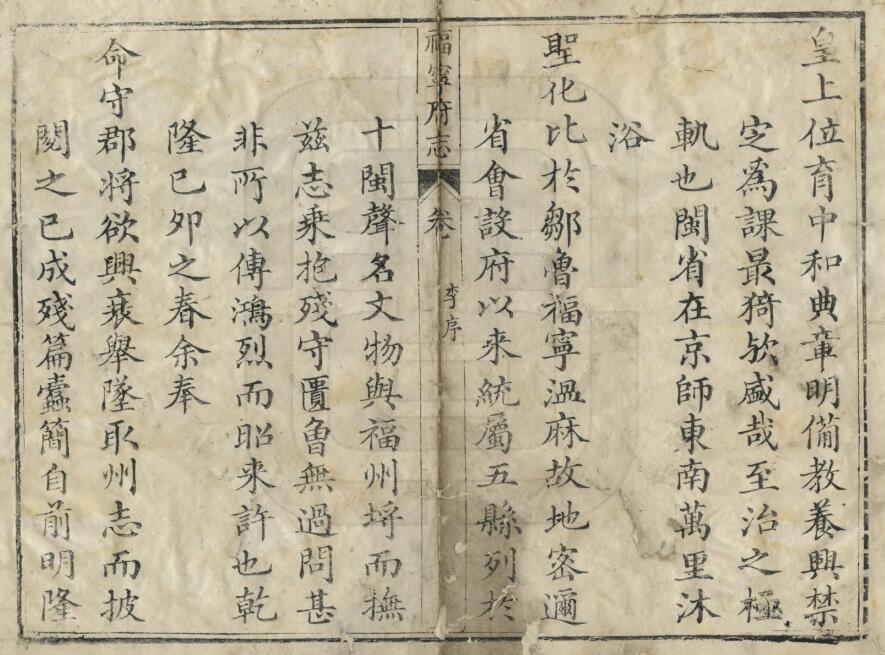 皇上位育中和典章明備教養興禁
定爲課最猗歟盛哉至治之極
軌也閩省在京師東南萬里沐
浴
聖化比於鄒魯福寧溫麻故地密邇
省會設府以來統屬五縣列於
福寧府志
卷
李序
十閩聲名文物與福州埒而撫
兹志乗抱殘守匱魯無過問甚
非所以傳鴻烈而昭来許也乾
隆己夘之春余奉
命守郡將欲興衰舉墜取州志而披
閱之已成殘篇蠹簡自前明隆